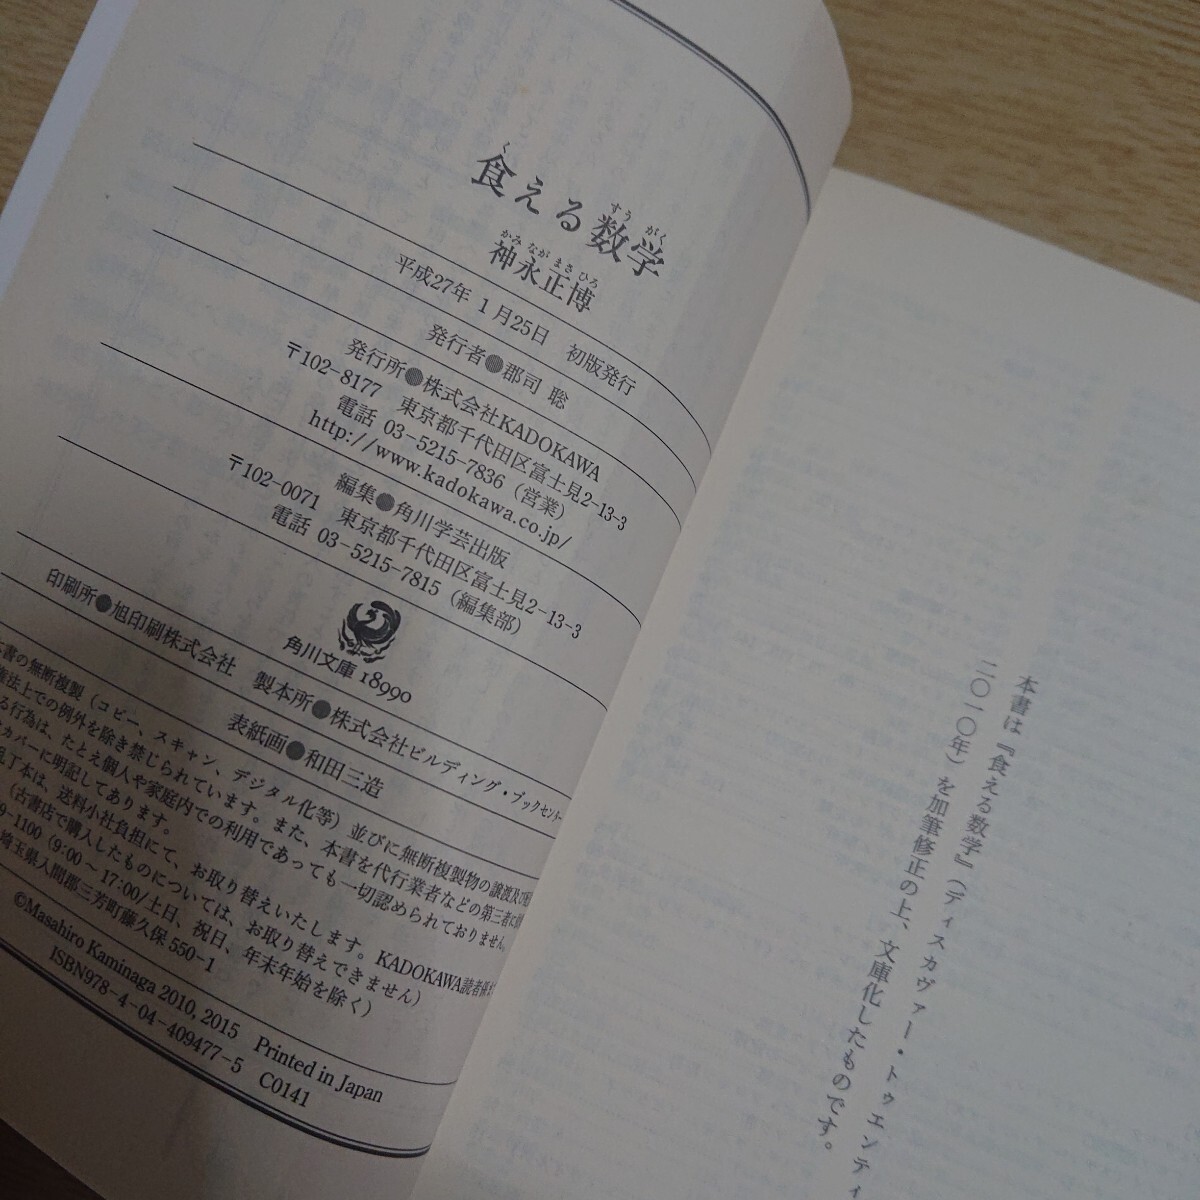 本書は『食える数学』(ディスカヴァー・トゥエンティ
二〇一〇年)を加筆修正の上、文庫化したものです。
食える数学
く
すう がく
神永正博
かみ なが まさ ひろ
平成27年 1月25日 初版発行
発行者●郡司 聡
発行所●株式会社KADOKAWA
〒102-8177 東京都千代田区富士見2-13-3
電話 03-5215-7836(営業)
http://www.kadokawa.co.jp/
編集●角川学芸出版
〒102-0071 東京都千代田区富士見2-13-3
電話 03-5215-7815(編集部)
角川文庫 18990
印刷所●旭印刷株式会社 製本所●株式会社ビルディング・ブックセンター
表紙画●和田三造
本書の無断複製(コピー、スキャン、デジタル化等)並びに無断複製物の譲渡及び
権法上での例外を除き禁じられています。また、本書を代行業者などの第三者に
る行為は、たとえ個人や家庭内での利用であっても一切認められておりません。
カバーに明記してあります。
乱丁本は、送料小社負担にて、お取り替えいたします。KADOKAWA読者係
(古書店で購入したものについては、お取り替えできません)
9-1100(9:00~17:00/土日、祝日、年末年始を除く)
埼玉県入間郡三芳町藤久保550-1
©Masahiro Kaminaga 2010, 2015 Printed in Japan
ISBN978-4-04-409477-5 C0141